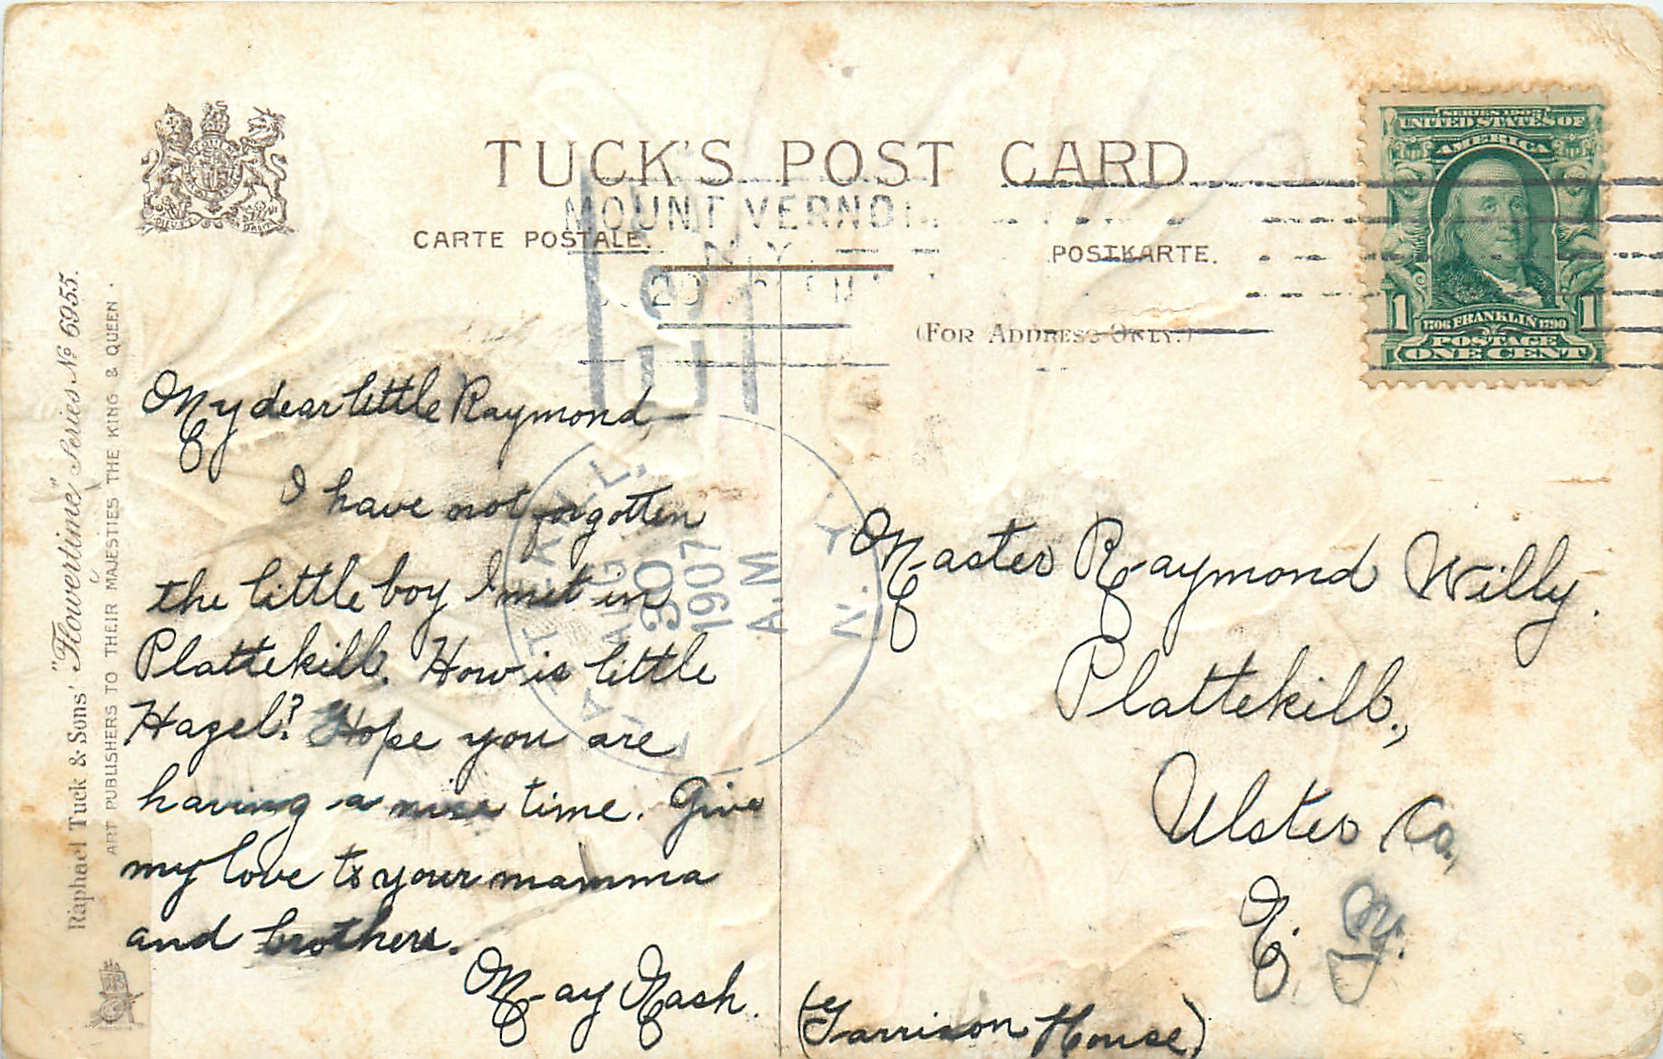 TUCK'S POST CARD
CARTE POSTALE.
POSTKARTE.
(FOR ADDRESS ONLY.)
MOUNT VERNON
N.Y.
SERIES 1902
UNITED STATES OF
AMERICA
1 1
1706 FRANKLIN 1790
POSTAGE
ONE CENT
Raphael Tuck & Sons' "Flowertime" Series No 6955.
ART PUBLISHERS TO THEIR MAJESTIES THE KING & QUEEN.
AUG
30
1907
A.M
N.Y.
My dear little Raymond,
I have not forgotten
the little boy I met in
Plattekill. How is little
Hazel? Hope you are
having a nice time. Give
my love to your mamma
and brothers.
May Nash.
Master Raymond Willy.
Plattekill.,
Ulster Co.,
N. Y.
(Garrison House)